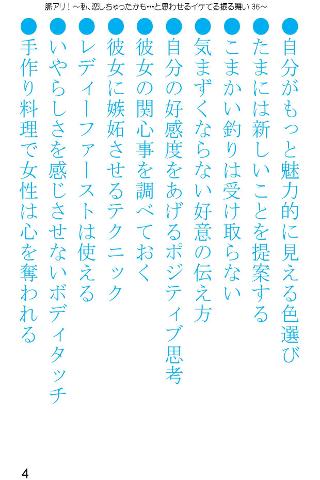 脈アリ！～私、恋しちゃったかも…と思わせるイケてる振る舞い36～
●自分がもっと魅力的に見える色選び
●たまには新しいことを提案する
●こまかい釣りは受け取らない
●気まずくならない好意の伝え方
●自分の好感度をあげるポジティブ思考
●彼女の関心事を調べておく
●彼女に嫉妬させるテクニック
●レディーファーストは使える
●いやらしさを感じさせないボディタッチ
●手作り料理で女性は心を奪われる
4